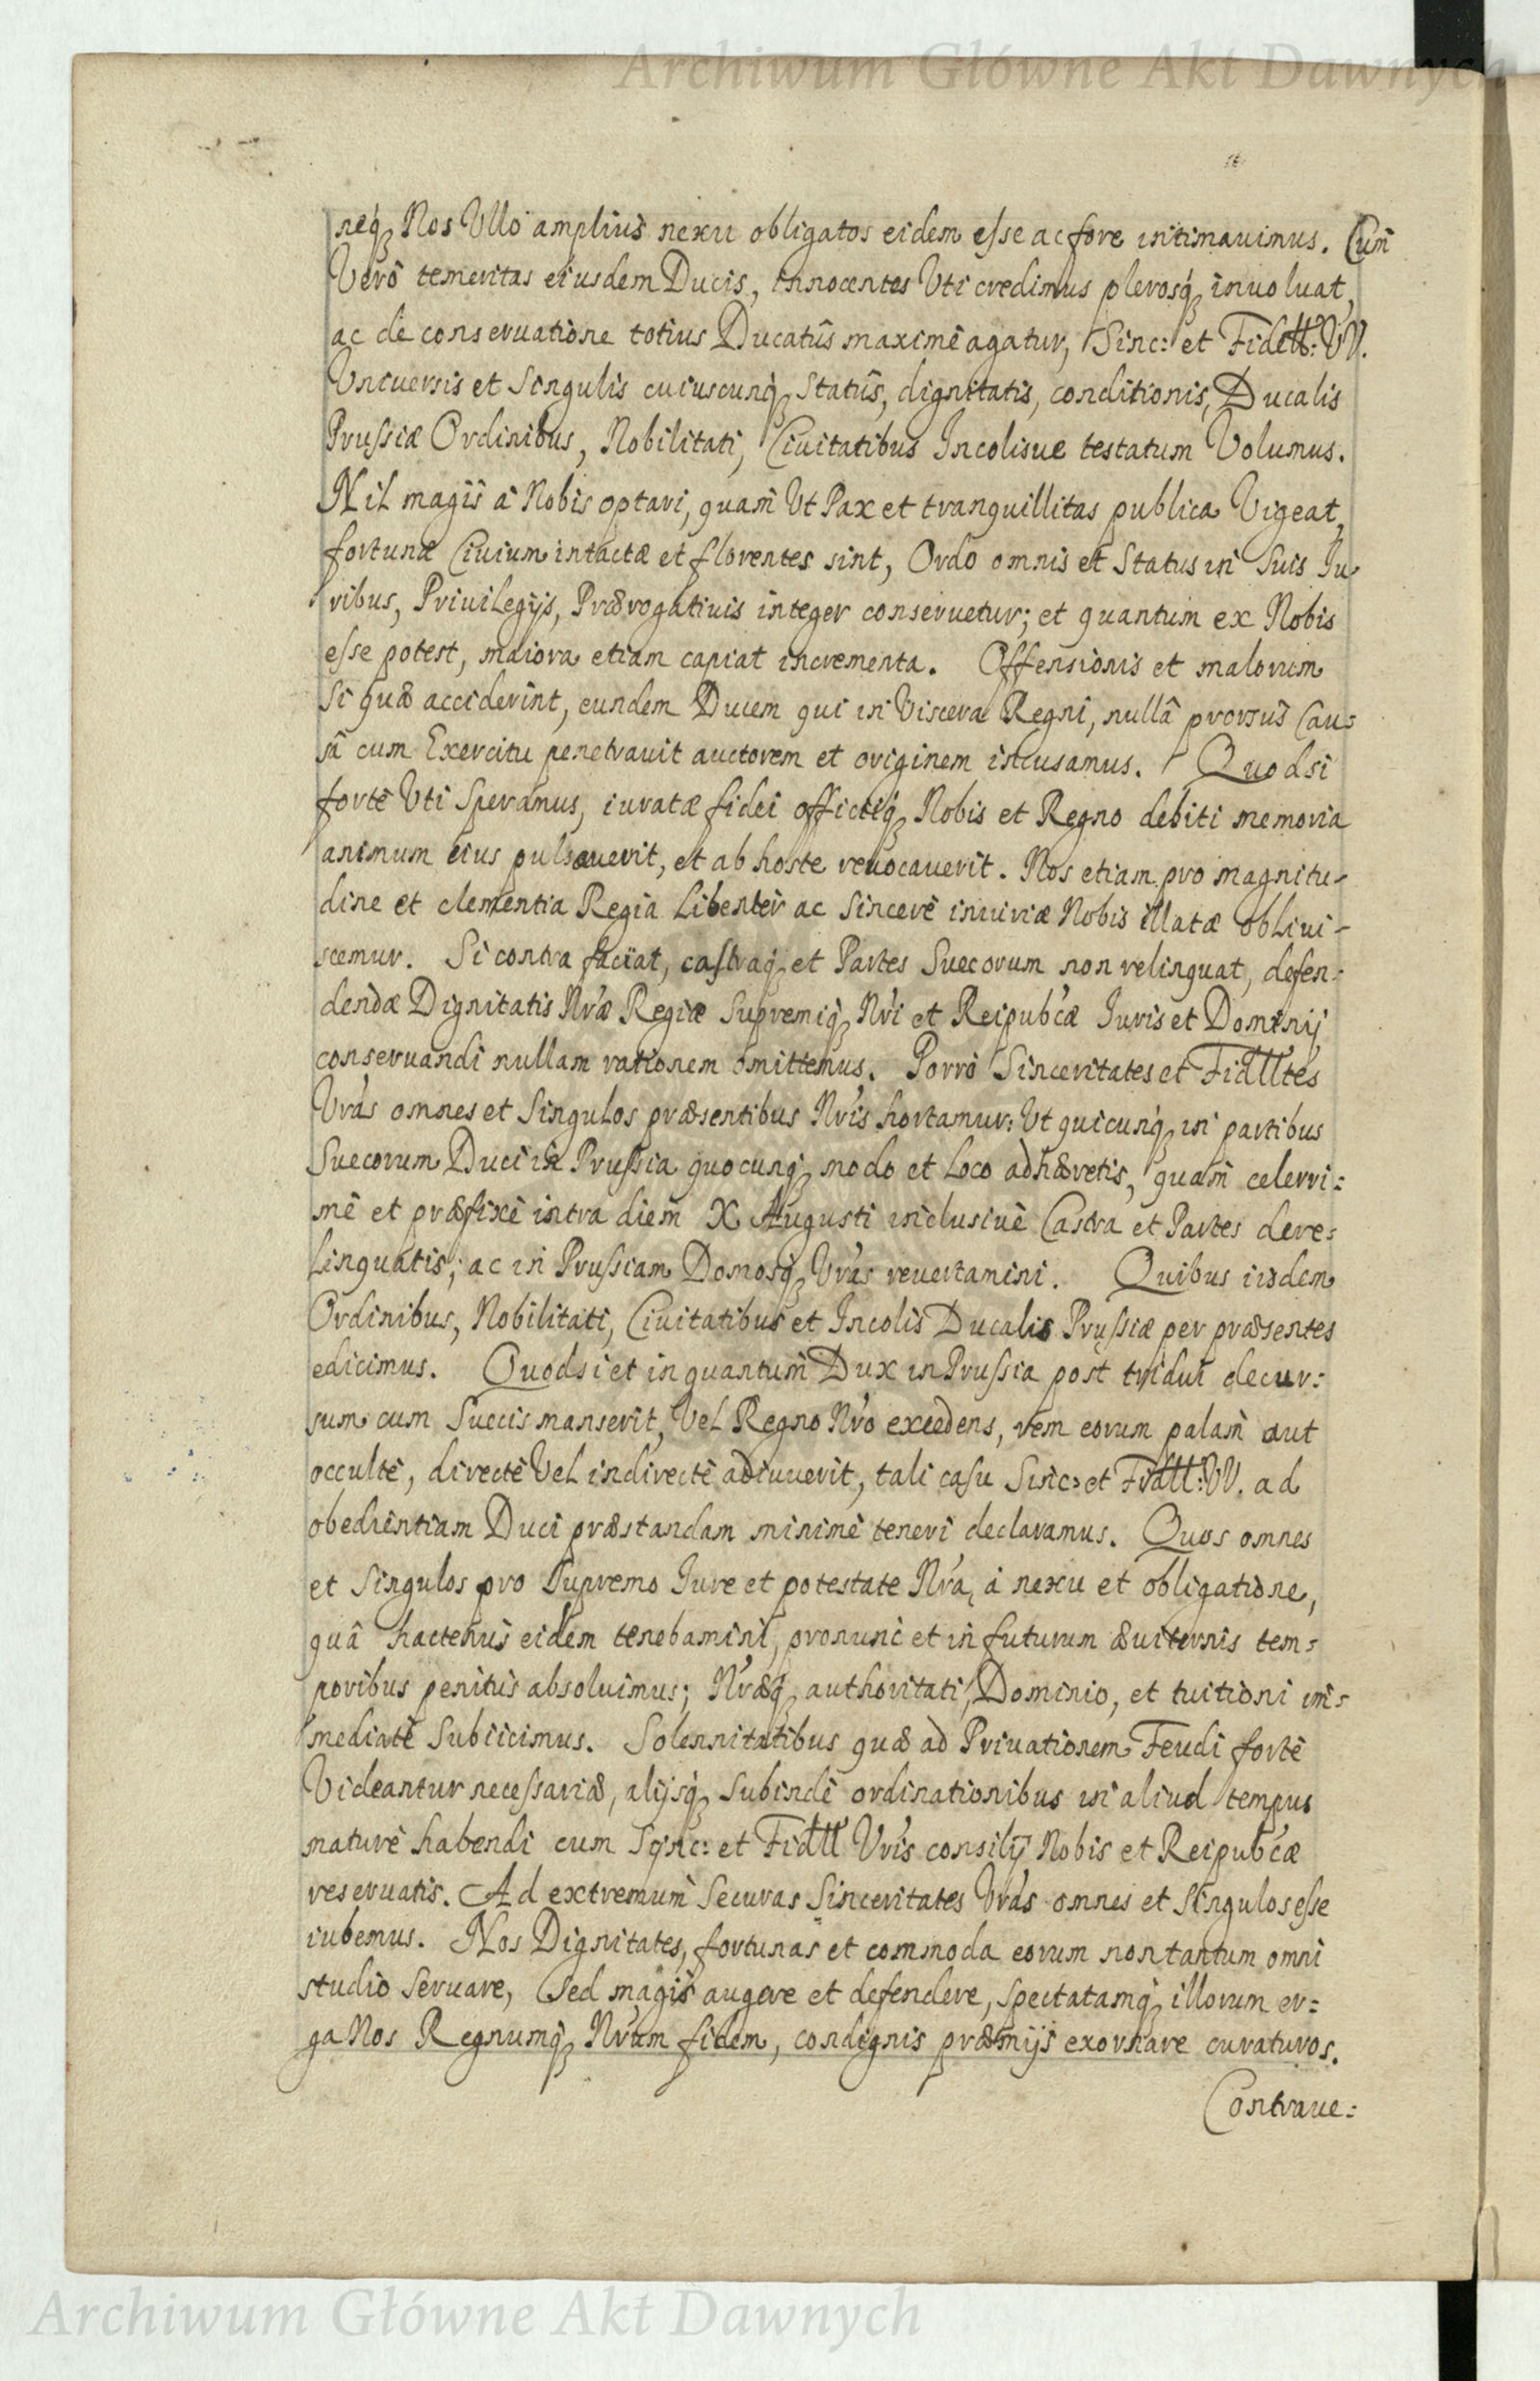 Archiwum Główne Akt Dawnych
neq₃ Nos Vllo amplius nexu obligatos eidem esse ac fore intimauimus. Cum
Verò temeritas eiusdem Ducis, innocentes Vti credimus plerosq₃ inuoluat,
ac de conseruatione totius Ducatûs maximè agatur, Sinc: et Fidell: VV.
Vniuersis et Singulis cuiuscunq₃ Statûs, dignitatis, conditionis, Ducalis
Prussiæ Ordinibus, Nobilitati, Ciuitatibus Incolisue testatum Volumus.
Nil magis à Nobis optari, quam Vt Pax et tranquillitas publica Vigeat,
fortunæ Ciuium intactæ et florentes sint, Ordo omnis et Status in Suis Iu-
ribus, Priuilegijs, Prærogatiuis integer conseruetur; et quantum ex Nobis
esse potest, maiora etiam capiat incrementa. Offensionis et malorum
Si quæ acciderint, eundem Ducem qui in Viscera Regni, nullâ prorsus Cau=
sâ cum Exercitu penetrauit auctorem et originem incusamus. Quodsi
fortè Vti Speramus, iuratæ fidei officiiq₃ Nobis et Regno debiti memoria
animum eius pulsauerit, et ab hoste reuocauerit. Nos etiam pro magnitu-
dine et clementia Regia Libenter ac Sincerè iniuriæ Nobis illatæ obliui-
scemur. Si contra faciat, castraq₃ et Partes Suecorum non relinquat, defen=
dendæ Dignitatis Nræ Regiæ Supremiq₃ Nri et Reipubcæ Iuris et Dominij
conseruandi nullam rationem omittemus. Porrò Sinceritates et Fidlltes
Vras omnes et Singulos præsentibus Nris hortamur: Vt quicunq₃ in partibus
Suecorum Duci in Prussia quocunq₃ modo et Loco adhæretis, quàm celerri=
mè et præfixè intra diem X Augusti inclusiuè Castra et Partes dere=
linquatis; ac in Prussiam Domosq₃ Vras reuertamini. Quibus iisdem
Ordinibus, Nobilitati, Ciuitatibus et Incolis Ducalis Prussiæ per præsentes
edicimus. Quodsi et inquantum Dux in Prussia post tridui decur=
sum cum Suecis manserit, Vel Regno Nro excedens, rem eorum palàm aut
occultè, directè Vel indirectè adiuuerit, tali casu Sinc: et Fidll: VV. ad
obedientiam Duci præstandam minimè teneri declaramus. Quos omnes
et Singulos pro Supremo Iure et potestate Nra, à nexu et obligatione,
quâ hactenus eidem tenebamini, pronunc et in futurum æuiternis tem=
poribus penitùs absoluimus; Nræq₃ authoritati, Dominio, et tuitioni im=
mediatè Subiicimus. Solennitatibus quæ ad Priuationem Feudi fortè
Videantur necessariæ, alijsq₃ Subindè ordinationibus in aliud tempus
maturè habendi cum Sinc: et Fidll Vris consilij Nobis et Reipubcæ
reseruatis. Ad extremum Securas Sinceritates Vras omnes et Singulos esse
iubemus. Nos Dignitates, fortunas et commoda eorum non tantum omni
studio Seruare, Sed magis augere et defendere, Spectatamq₃ illorum er=
ga Nos Regnumq₃ Nrum fidem, condignis præmijs exornare curaturos.
Contraue=
Archiwum Główne Akt Dawnych